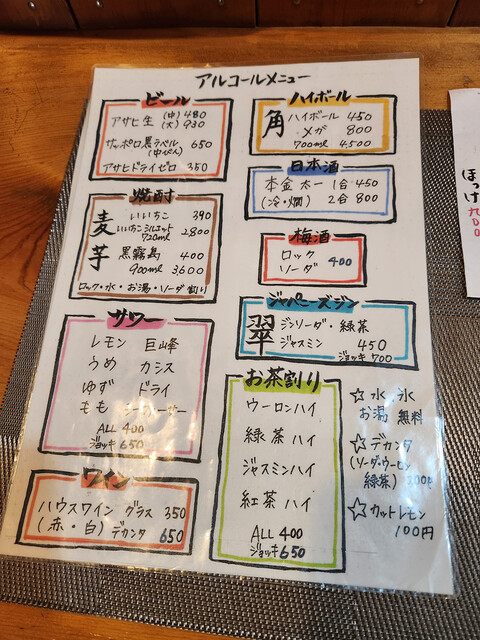 アルコールメニュー
ビール
アサヒ生 (中) 480
(大) 930
サッポロ黒ラベル 650
(中びん)
アサヒドライゼロ 350
焼酎
麦 いいちこ 390
いいちこシルエット 2800
720ml
芋 黒霧島 400
900ml 3600
ロック・水・お湯・ソーダ割り
サワー
レモン 巨峰
うめ カシス
ゆず ドライ
もも シークヮーサー
ALL 400
ジョッキ 650
ワイン
ハウスワイン グラス 350
(赤・白) デカンタ 650
ハイボール
角 ハイボール 450
メガ 800
700ml 4,500
日本酒
本金 太一 1合 450
(冷・燗) 2合 800
梅酒
ロック
ソーダ 400
ジャパニーズジン
翠 ジンソーダ・緑茶
ジャスミン 450
ジョッキ 700
お茶割り
ウーロンハイ
緑茶ハイ
ジャスミンハイ
紅茶ハイ
ALL 400
ジョッキ 650
☆ 水・氷
お湯 無料
☆ デカンタ
(ソーダ・ウーロン
緑茶) 200円
☆ カットレモン
100円
ほっけ